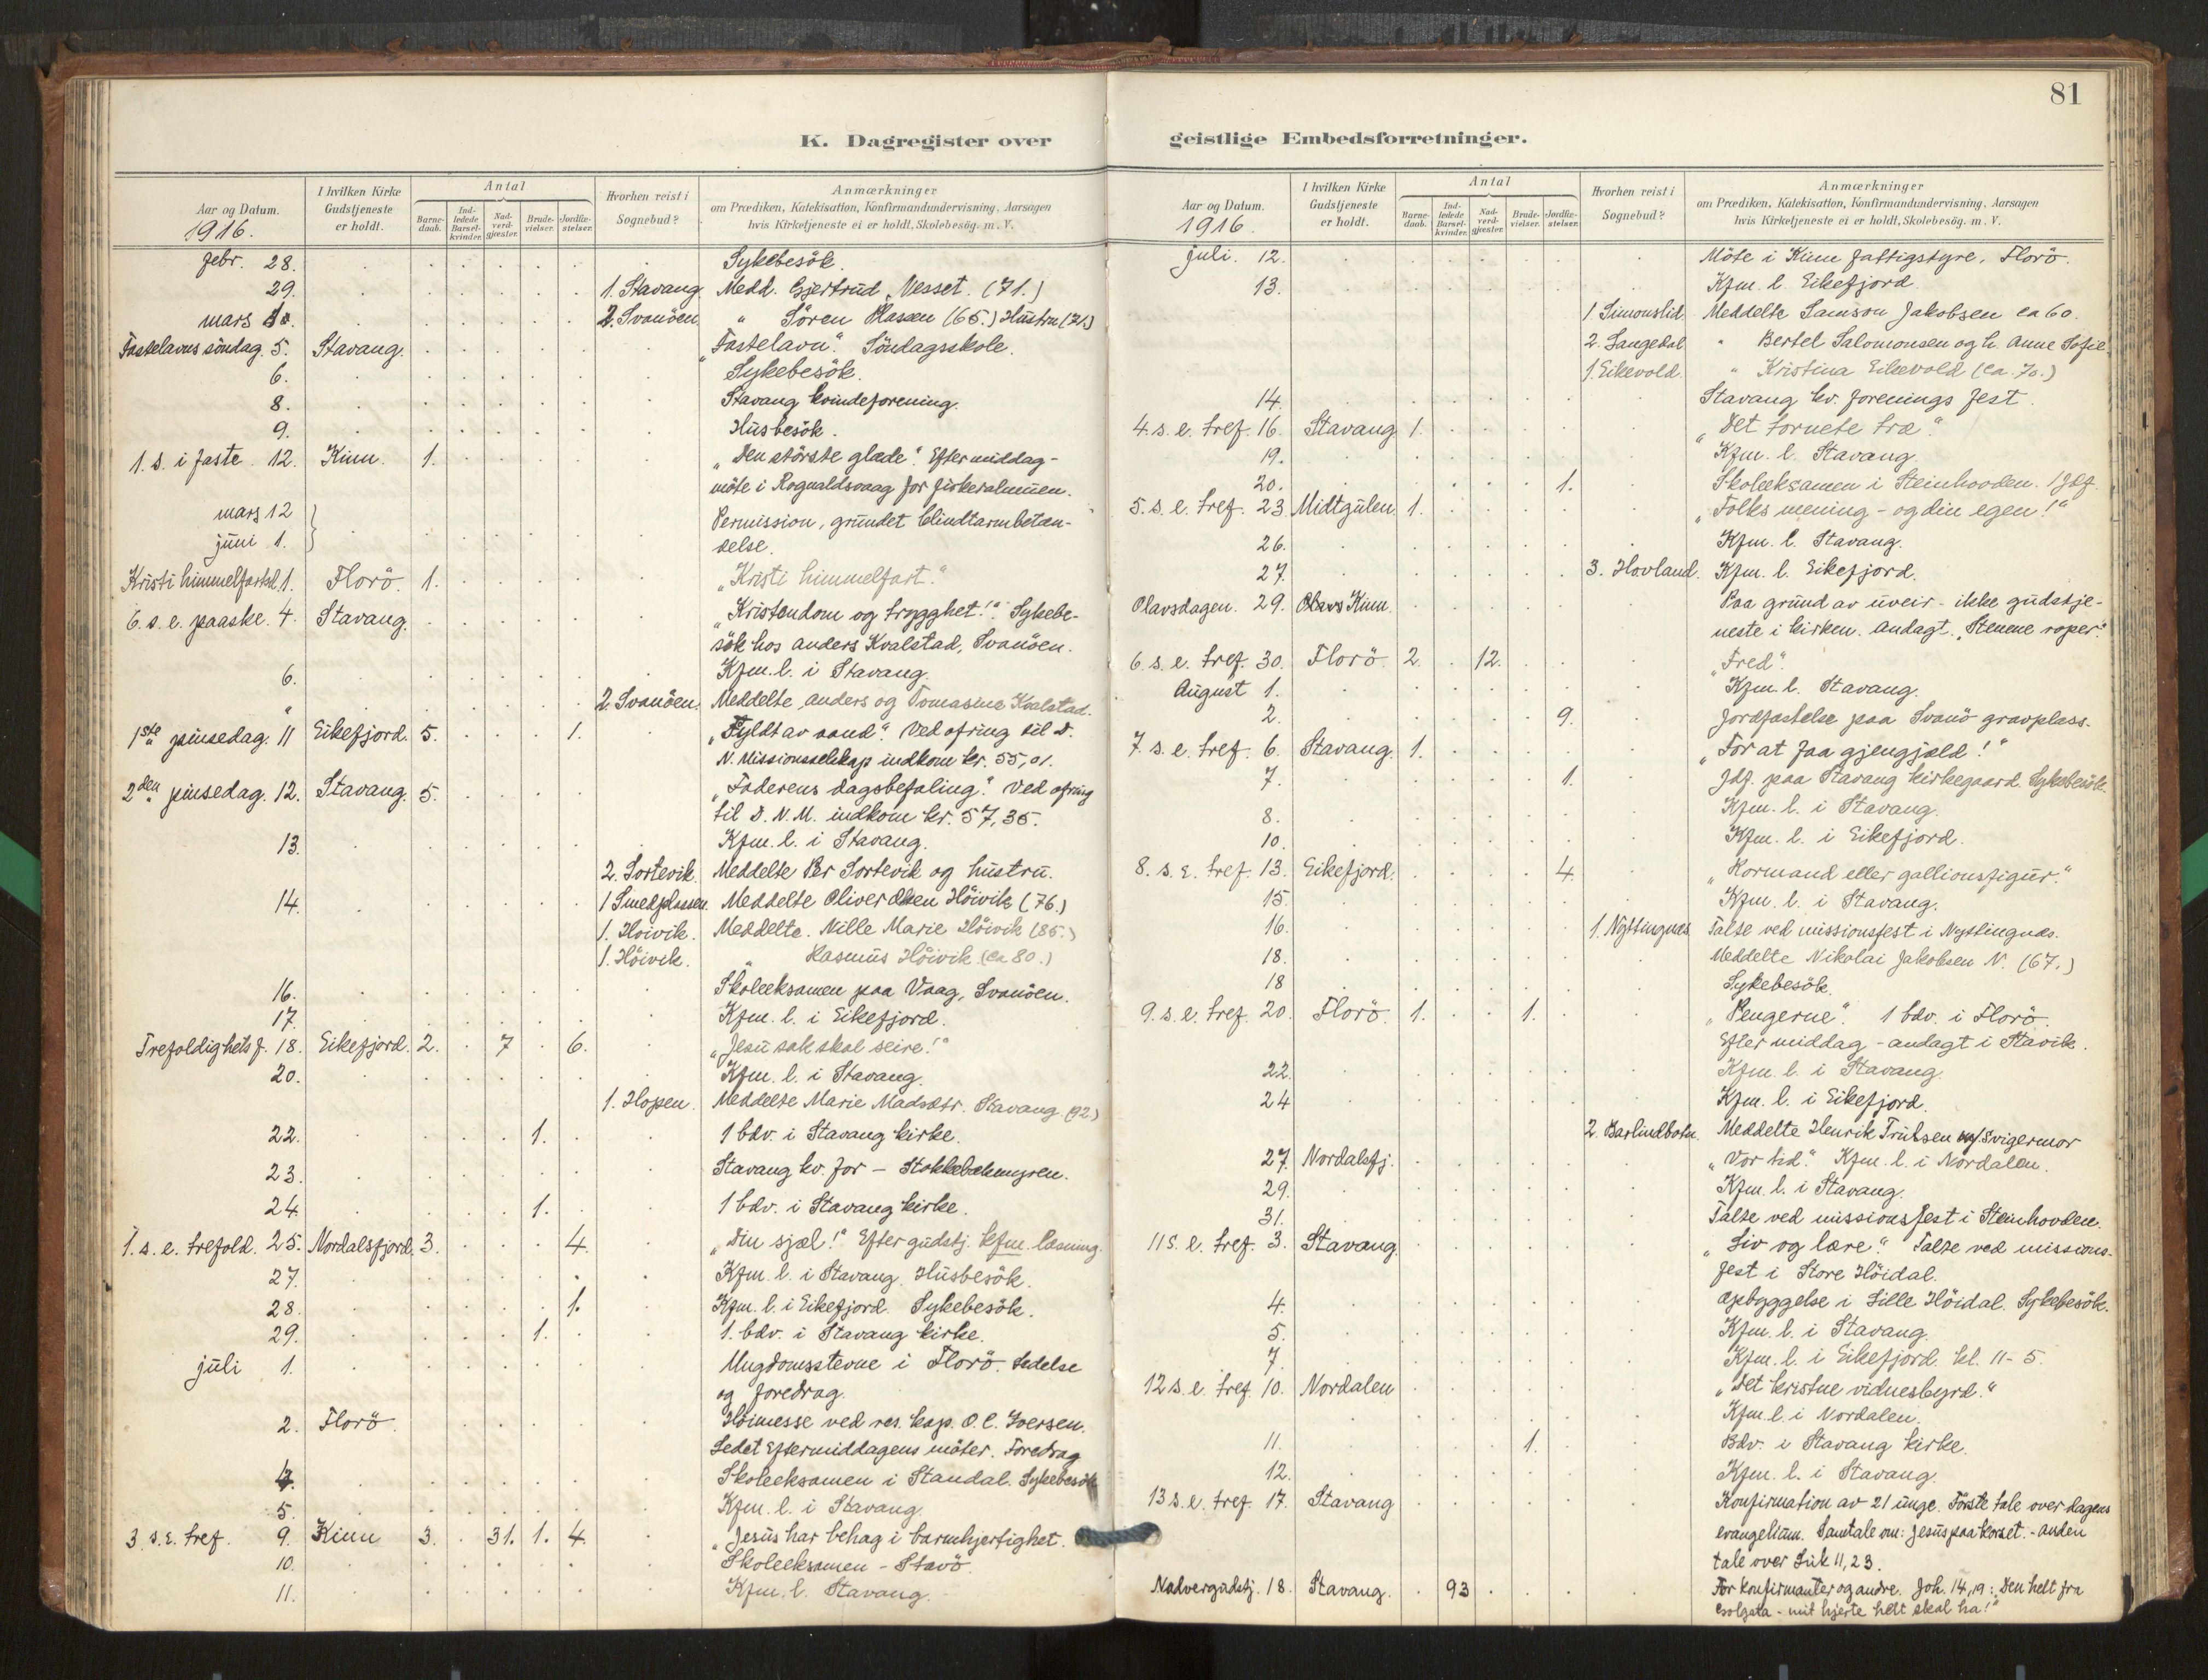 81
K. Dagregister over
Aar og Datum.
1916.
I hvilken Kirke Gudstjeneste er holdt.
Antal
Barnedaab.
Indledede Barselkvinder.
Nadverdgjæster.
Brudevielser.
Jordfæstelser.
Hvorhen reist i Sognebud?
Anmærkninger
om Prædiken, Katekisation, Konfirmandundervisning, Aarsagen
hvis Kirketjeneste ei er holdt, Skolebesøg. m. V.
febr. 28. Sykebesök.
29. 1. Stavang. Medd. Gjertrud Nesset. (71.)
mars 2. Svanöen. " Sören (65.) Hustru (71.)
Fastelavns söndag. 5. Stavang. "Fastelavn". Söndagsskole.
6. Sykebesök.
8. Stavang kvindeforening.
9. Husbesök.
1. s. i faste. 12. Kinn. 1. "Den störste glæde". Eftermiddag-
möte i Rognaldsvaag for fiskeralmuen.
mars 12 Permission, grundet blindtarmbetæn-
juni 1. delse.
Kristi himmelfartsd. 1. Florö. 1. "Kristi himmelfart."
6. s. e. paaske. 4. Stavang. "Kristendom og trygghet!" Sykebe-
sök hos Anders Kvalstad, Svanöen.
6. Kfm. l. i Stavang.
" 2. Svanöen. Meddelte Anders og Tomasine Kvalstad.
1ste pinsedag. 11 Eikefjord. 5. 1. "Fyldt av aand". Ved ofring til D.
N. Missionsselskap indkom kr. 55,01.
2den pinsedag. 12. Stavang. 5. "Faderens dagsbefaling". Ved ofring
til D. N. M. indkom kr. 57,35.
13. Kfm. l. i Stavang.
2. Sortevik. Meddelte Per Sortevik og hustru.
14. 1 Smedplassen. Meddelte Oliver Olsen Höivik (76.)
1. Höivik. Meddelte. Nille Marie Höivik (85.)
1. Höivik. " Rasmus Höivik (ca 80.)
16. Skoleeksamen paa Vaag, Svanöen.
17. Kfm. l. i Eikefjord.
Trefoldighets f. 18. Eikefjord. 2. 7 6. "Jesu sak skal seire!"
20. Kfm. l. i Stavang.
1. Hopen. Meddelte Marie Madsdtr. Stavang (92.)
22. 1. 1 bdv. i Stavang kirke.
23. Stavang kv. for –
24. 1. 1 bdv. i Stavang kirke.
1. s. e. trefold. 25. Nordalsfjord. 3. 4. "Din sjæl!" Efter gudstj. kfm. læsning.
27. Kfm. l. i Stavang. Husbesök.
28. 1. Kfm. l. i Eikefjord. Sykebesök.
29. 1. 1. bdv. i Stavang kirke.
juli 1. Ungdomsstevne i Florö. Ledelse
og foredrag.
2. Florö. Höimesse ved res. kap. O. C. Iversen.
Ledet Eftermiddagens möter. Foredrag
4. Skoleeksamen i Standal. Sykebesök
5. Kfm. l. i Stavang.
3. s. e. tref. 9. Kinn 3. 31. 1. 4. "Jesus har behag i barmhjertighet.
10. Skoleeksamen – Stavö.
11. Kfm. l. Stavang.
geistlige Embedsforretninger.
Aar og Datum.
1916.
I hvilken Kirke Gudstjeneste er holdt.
Antal
Barnedaab.
Indledede Barselkvinder.
Nadverdgjæster.
Brudevielser.
Jordfæstelser.
Hvorhen reist i Sognebud?
Anmærkninger
om Prædiken, Katekisation, Konfirmandundervisning, Aarsagen
hvis Kirketjeneste ei er holdt, Skolebesøg. m. V.
juli. 12. Möte i Kinn fattigstyre, Florö.
13. Kfm. l. Eikefjord.
1. Simonslid. Meddelte Samson Jakobsen ca 60.
2. Langedal " Bertel Salomonsen og h. Anne Sofie.
1. Eikevold. " Kristina Eikevold (ca. 70.)
14. Stavang kv. forenings fest.
4. s. e. tref. 16. Stavang 1. "Det tornete træ."
19. Kfm. l. Stavang.
20. 1. Skoleeksamen i Steinhovden. 1 jdf.
5. s. e. tref. 23. Midtgulen. 1. "Folks mening – og din egen!"
26. Kfm. l. Stavang.
27. 3. Hovland. Kfm. l. Eikefjord.
Olavsdagen. 29. Kinn. Paa grund av uveir – ikke gudstje-
neste i kirken. Andagt. "Stenene roper."
6. s. e. tref. 30. Florö. 2. 12. "Fred".
August 1. Kfm. l. Stavang.
2. 9. Jordfæstelse paa Svanö gravplass.
7. s. e. tref. 6. Stavang. 1. "For at faa gjengjæld!"
7. 1. Jdf. paa Stavang kirkegaard. Sykebesök.
8. Kfm. l. i Stavang.
10. Kfm. l. i Eikefjord.
8. s. e. tref. 13. Eikefjord. 4. "Rormand eller gallionsfigur."
15. Kfm. l. i Stavang.
16. 1. Nyttingnes. Talte ved missionsfest i Nyttingnes.
18. Meddelte Nikolai Jakobsen N. (67.)
18 Sykebesök.
9. s. e. tref. 20. Florö. 1. 1. "Pengerne". 1 bdv. i Florö.
Eftermiddag – andagt i Stavik.
22. Kfm. l. i Stavang.
24 Kfm. l. i Eikefjord.
2. Barlindbotn. Meddelte Henrik Trulsen Svigermor
27. Nordalsfj. "Vor tid." Kfm. l. i Nordalen.
29. Kfm. l. i Stavang.
31. Talte ved missionsfest i Steinhovden.
11 s. e. tref. 3. Stavang. "Liv og lære". Talte ved missions-
fest i Store Höidal.
4. Opbyggelse i Lille Höidal. Sykebesök.
5. Kfm. l. i Stavang.
7. Kfm. l. i Eikefjord. kl. 11–5.
12 s. e. tref. 10. Nordalen "Det kristne vidnesbyrd."
Kfm. l. i Nordalen.
11. 1. Bdv. i Stavang kirke.
12. Kfm. l. i Stavang.
13 s. e. tref. 17. Stavang Konfirmation av 21 unge. Förste tale over dagens
evangelium. Samtale om: Jesus paa korset. – Anden
tale over Luk 11, 23.
Nadvergudstj. 18. Stavang. 93 For konfirmanter og andre. Joh. 14, 19: "Den helt fra
Golgata – mit hjerte helt skal ha!"